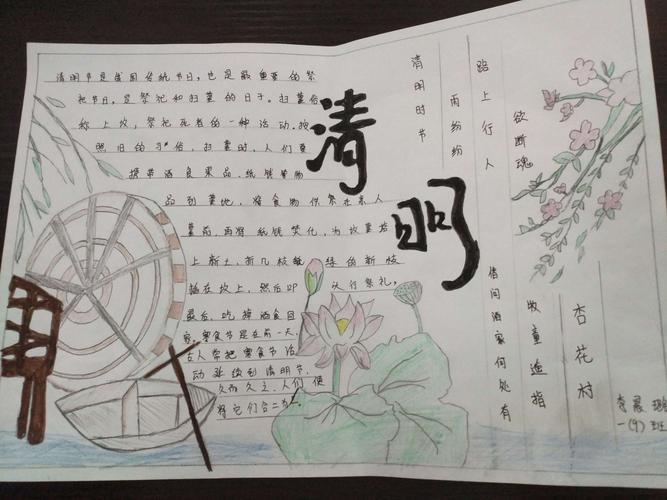 清明节是我国传统节日,也是最重要的祭
祀节日,是祭祀和扫墓的日子。扫墓俗
称上坟,祭祀死者的一种活动。按
照旧的习俗,扫墓时,人们要
携带酒食果品、纸钱等物
品到墓地,将食物供祭在亲人
墓前,再将纸钱焚化,为坟墓培
上新土,折几枝嫩绿的新枝
插在坟上,然后叩头行祭礼,
最后,吃掉酒食回
家。寒食节是在前一天,
古人常把寒食节活
动延续到清明节,
久而久之,人们便
将它们合二为一。
清明
清明时节
雨纷纷
路上行人
欲断魂
借问酒家何处有
牧童遥指
杏花村
一(9)班